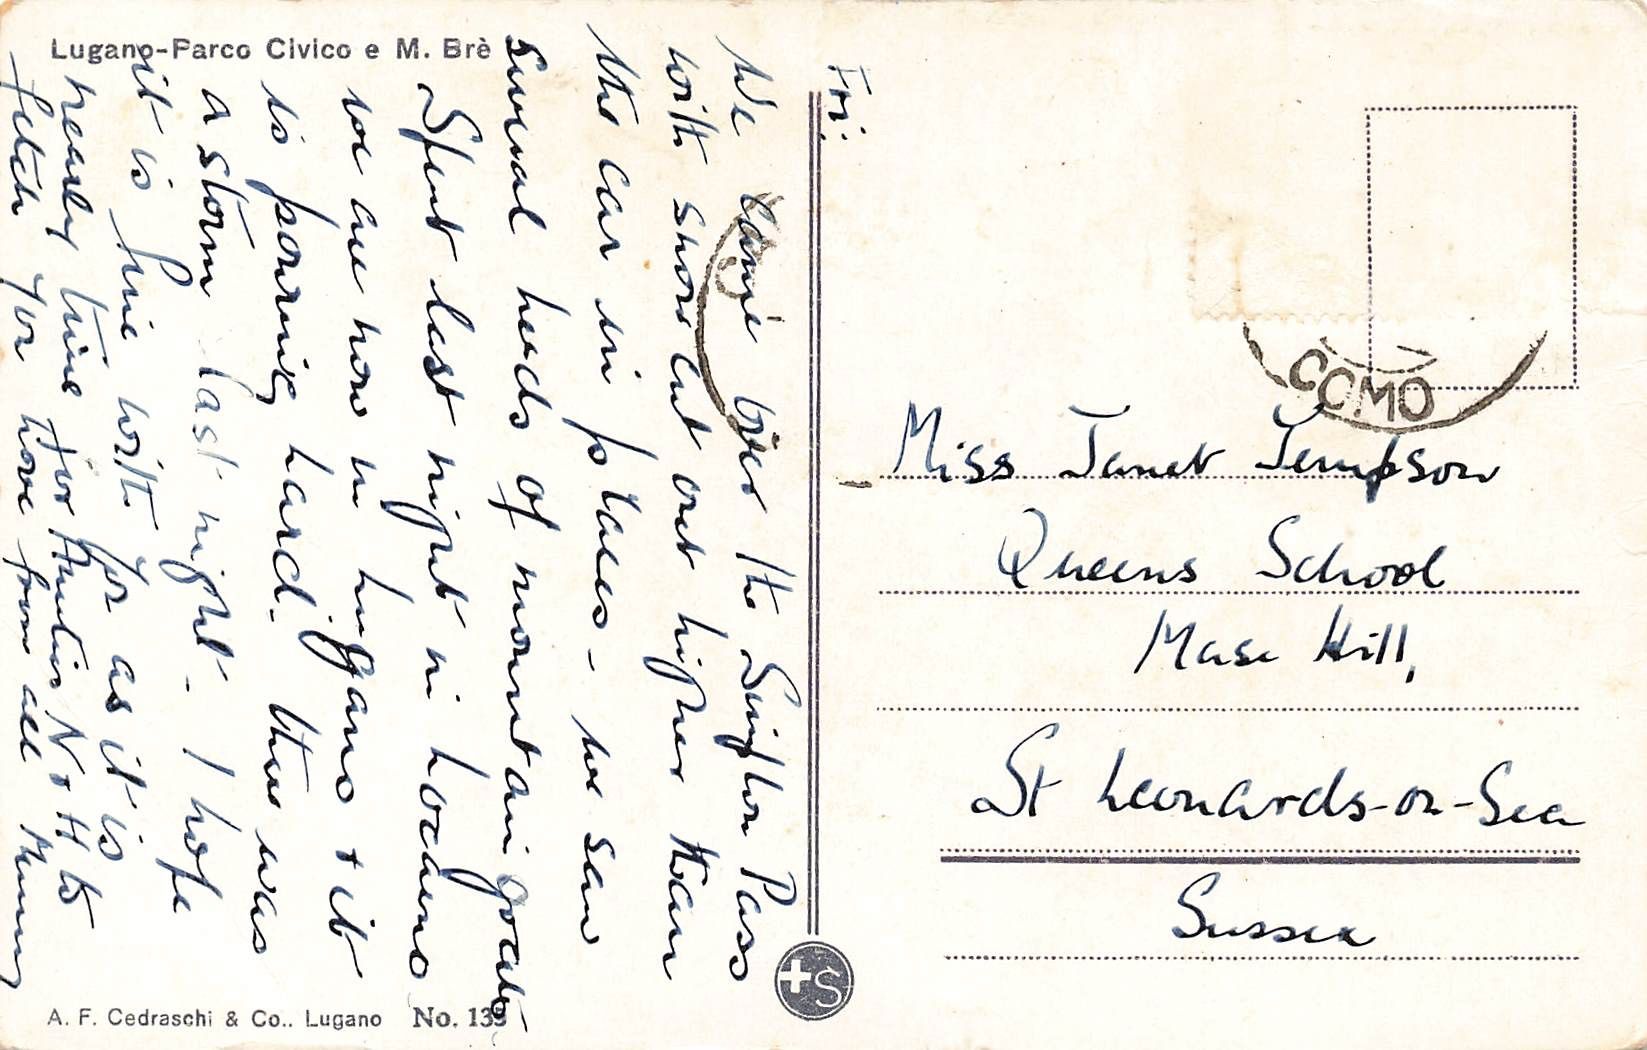 Lugano-Parco Civico e M. Brè
Fri:
We came over the Simplon Pass
with snow cut out higher than
the car in places - we saw
several herds of mountain goats
Spent last night in Locarno
we are now in Lugano + it
is pouring hard. there was
a storm last night - I hope
it is fine with for as it is
nearly time for Auntie N + H to
fetch you love from all Mummy
COMO
Miss Janet Jempson
Queens School
Maze Hill,
St Leonards-on-Sea
Sussex
+S
A. F. Cedraschi & Co.. Lugano No. 133